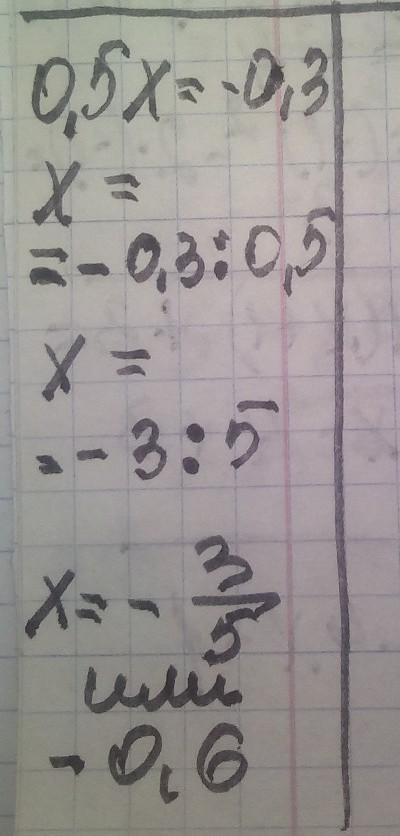 0,5x=-0,3
x=
=-0,3:0,5
x=
=-3:5
x=-3/5
или
-0,6